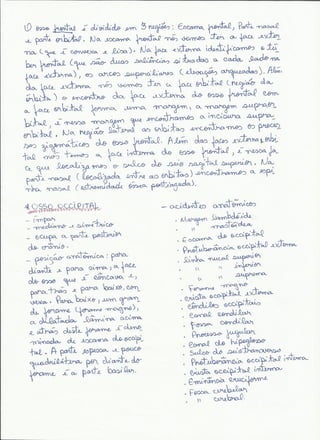 O osso frontal é dividido em 3 regiões: Escama frontal, Parte nasal
e parte orbital. Na escama frontal nós vamos ter a face exter
na (que é convexa e lisa). Na face externa identificamos o tú
ber frontal (que são duas saliências situadas a cada lado na
face externa), os arcos superciliares (elevações arqueadas). Além
da face externa, nós vamos ter a face orbital (região da
órbita). O encontro da face externa do osso frontal com
a face orbital forma uma margem, a margem supraor
bital, é nessa margem que encontramos a incisura supra-
orbital. Na região lateral as órbitas encontramos os proces
sos zigomáticos do osso frontal. Além das faces externa e orbi
tal nós temos a face interna do osso frontal, é nessa fa
ce que localizamos o sulco do seio sagital superior. Na
parte nasal (localizada entre as órbitas) encontramos a espi
nha nasal (extremidade óssea pontiaguda).
4 OSSO OCCIPITAL
- ímpar
- mediano - simétrico
- ocupa a parte posterior
do crânio.
- posição anatômica: para
diante e para cima, a face
do osso que é côncava e,
para trás e para baixo, con
vexa. Para baixo, um gran
de forame (forame magno),
a dilatada lâmina acima
e atrás deste forame é deno
minada de escama do occipi
tal. A parte espessa e pouco
quadrilátera por diante do
forame é a parte basilar.
- acidentes anatômicos
. Margem lambdóide
. " mastóidea
. Escama do occipital
. Protuberância occipital externa
. Linha nucal superior
. " " inferior
. " " suprema
. Forame magno
. crista occipital externa
. Côndilos occipitais
. Canal condilar
. Fossa condilar
. Processo jugular
. Canal do hipoglosso
. Sulco do seio transverso
. Protuberância occipital interna
. Crista occipital interna
. Eminência cruciforme
. Fossa cerebelar
. " cerebral